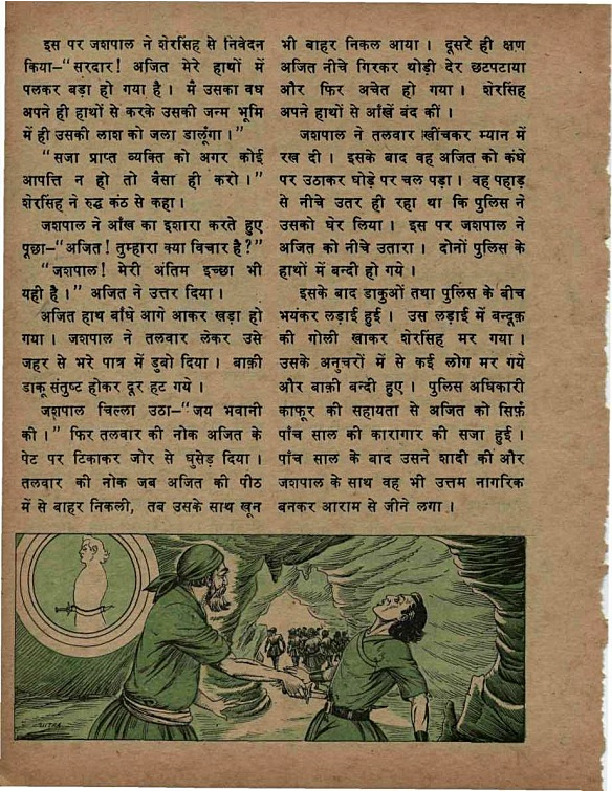 इस पर जशपाल ने शेरसिंह से निवेदन
किया–“सरदार! अजित मेरे हाथों में
पलकर बड़ा हो गया है । मैं उसका वध
अपने ही हाथों से करके उसकी जन्म भूमि
में ही उसकी लाश को जला डालूँगा ।”
“सजा प्राप्त व्यक्ति को अगर कोई
आपत्ति न हो तो वैसा ही करो ।”
शेरसिंह ने रुद्ध कंठ से कहा ।
जशपाल ने आँख का इशारा करते हुए
पूछा–“अजित! तुम्हारा क्या विचार है?”
“जशपाल! मेरी अंतिम इच्छा भी
यही है ।” अजित ने उत्तर दिया ।
अजित हाथ बाँधे आगे आकर खड़ा हो
गया । जशपाल ने तलवार लेकर उसे
जहर से भरे पात्र में डुबो दिया । बाक़ी
डाकू संतुष्ट होकर दूर हट गये ।
जशपाल चिल्ला उठा–“जय भवानी
की ।” फिर तलवार की नोक अजित के
पेट पर टिकाकर जोर से घुसेड़ दिया ।
तलवार की नोक जब अजित की पीठ
में से बाहर निकली, तब उसके साथ खून
भी बाहर निकल आया । दूसरे ही क्षण
अजित नीचे गिरकर थोड़ी देर छटपटाया
और फिर अचेत हो गया । शेरसिंह
अपने हाथों से आँखें बंद कीं ।
जशपाल ने तलवार खींचकर म्यान में
रख दी । इसके बाद वह अजित को कंधे
पर उठाकर घोड़े पर चल पड़ा । वह पहाड़
से नीचे उतर ही रहा था कि पुलिस ने
उसको घेर लिया । इस पर जशपाल ने
अजित को नीचे उतारा । दोनों पुलिस के
हाथों में बन्दी हो गये ।
इसके बाद डाकुओं तथा पुलिस के बीच
भयंकर लड़ाई हुई । उस लड़ाई में बन्दूक़
की गोली खाकर शेरसिंह मर गया ।
उसके अनुचरों में से कई लोग मर गये
और बाक़ी बन्दी हुए । पुलिस अधिकारी
काफूर की सहायता से अजित को सिर्फ़
पाँच साल की कारागार की सजा हुई ।
पाँच साल के बाद उसने शादी की और
जशपाल के साथ वह भी उत्तम नागरिक
बनकर आराम से जीने लगा ।